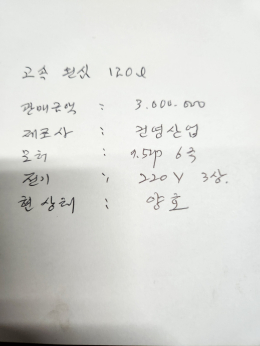 고속 원심 120ℓ
판매금액 : 3.000.000
제조사 : 건영산업
모터 : 7.5HP 6극
전기 : 220V 3상.
현상태 : 양호